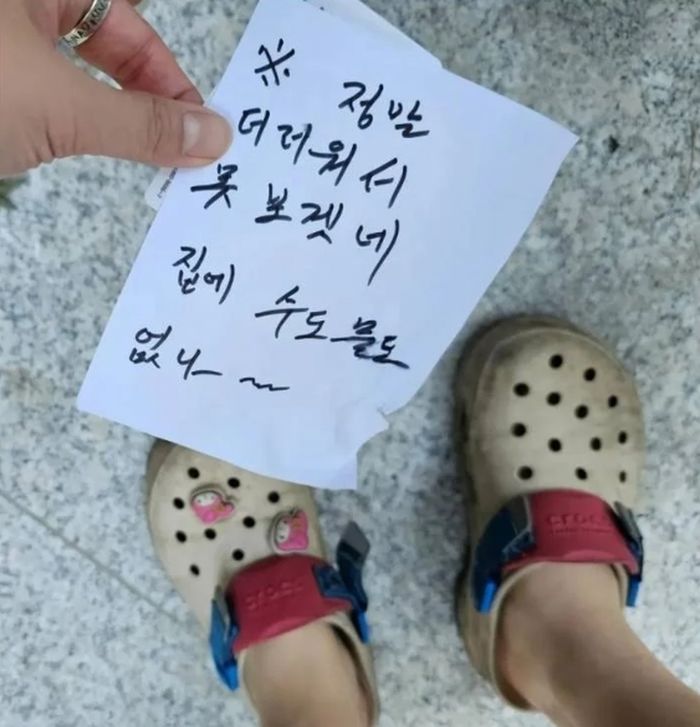 ※ 정말
더러워서
못 보겟네
집에 수도물도
없나~
crocs
crocs